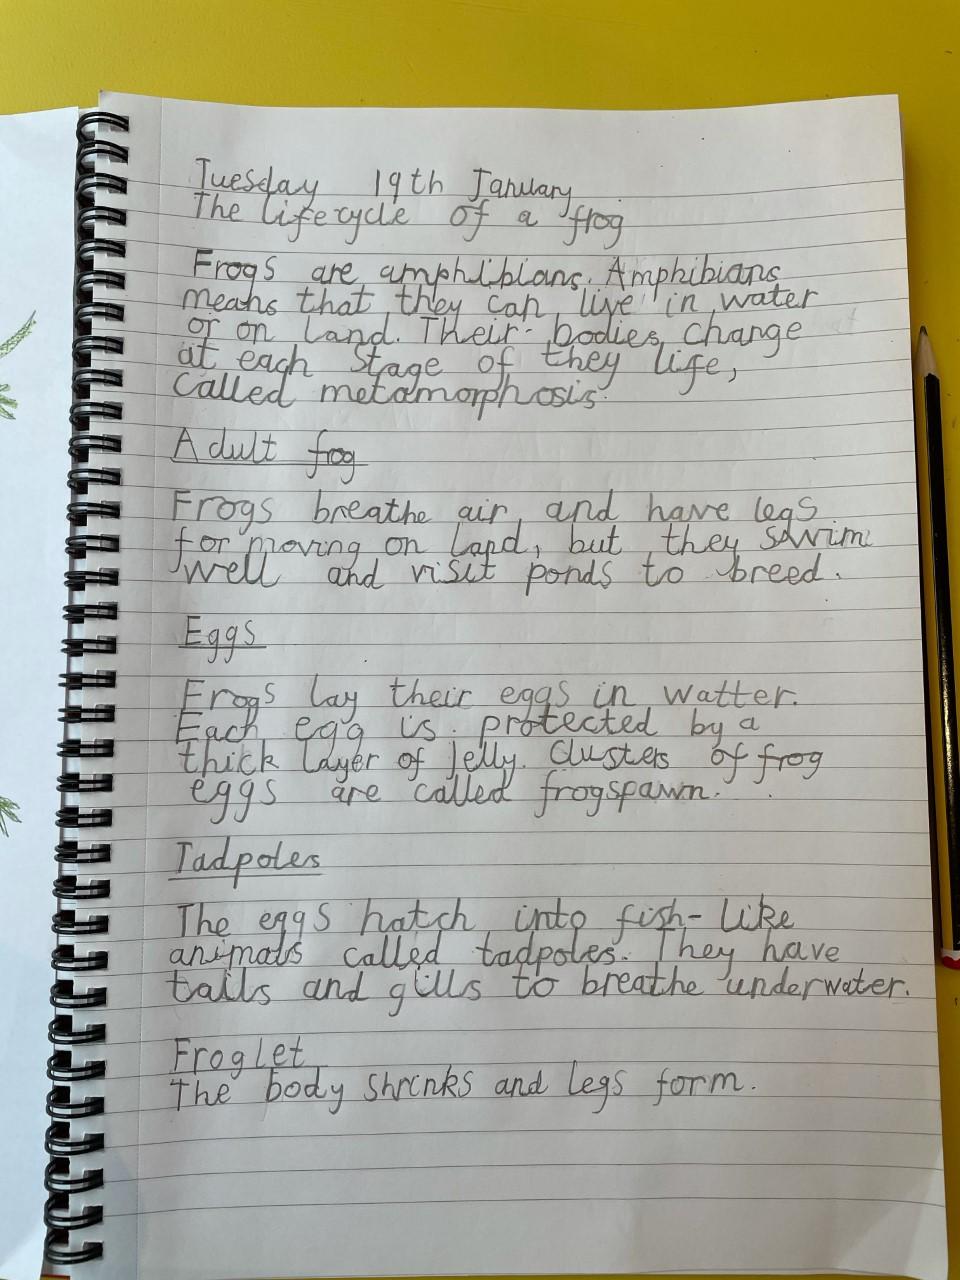 Tuesday 19th January
The lifecycle of a frog
Frogs are amphibians. Amphibians
means that they can live in water
or on land. Their bodies change
at each stage of they life,
called metamorphosis.
Adult frog
Frogs breathe air and have legs
for moving on land, but they swim
well and visit ponds to breed.
Eggs
Frogs lay their eggs in watter.
Each egg is protected by a
thick layer of jelly. Clusters of frog
eggs are called frogspawn.
Tadpoles
The eggs hatch into fish-like
animals called tadpoles. They have
tails and gills to breathe underwater.
Froglet
The body shrinks and legs form.